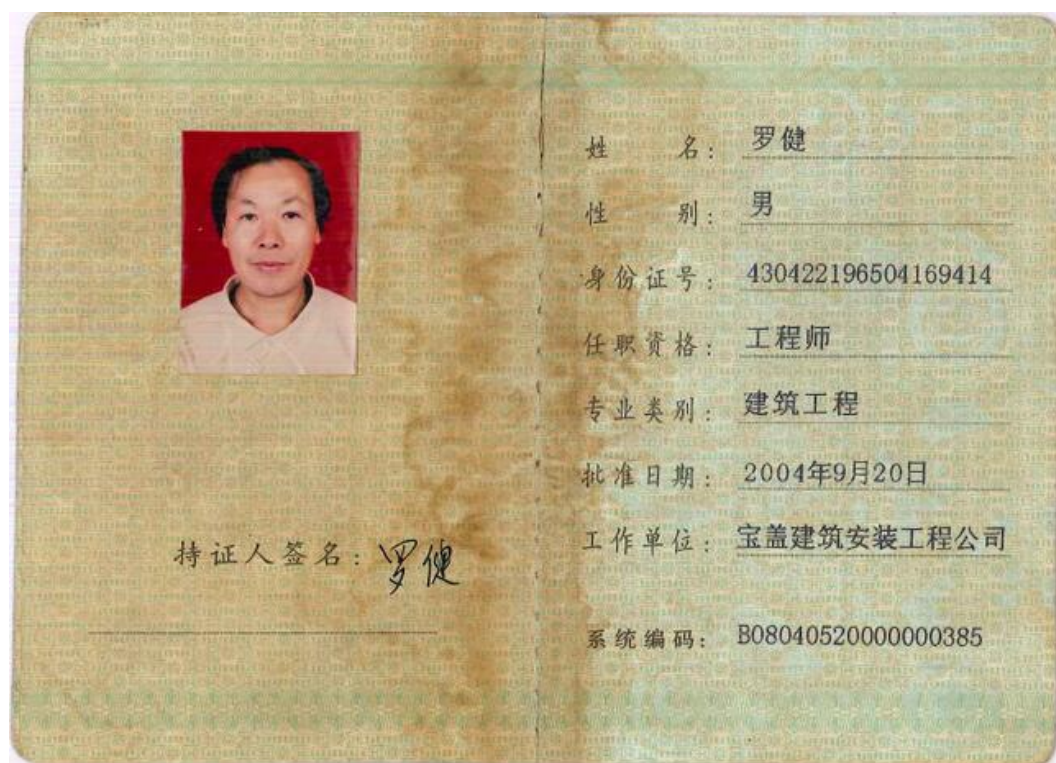 持证人签名：罗健
姓 名：罗健
性 别：男
身份证号：430422196504169414
任职资格：工程师
专业类别：建筑工程
批准日期：2004年9月20日
工作单位：宝盖建筑安装工程公司
系统编码：B08040520000000385